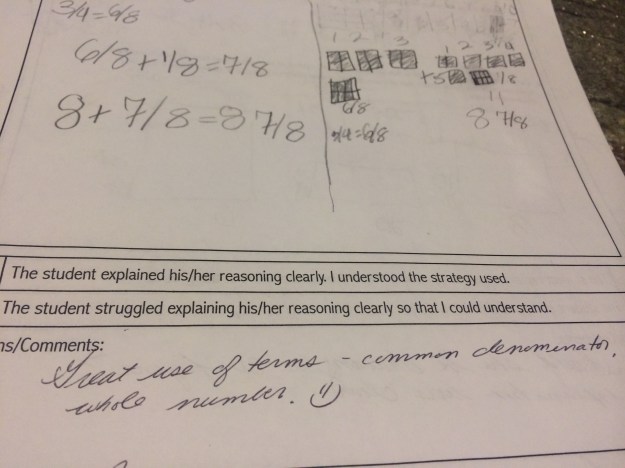 3/4=6/8
6/8+1/8=7/8
8+7/8=8 7/8
1 2 3
6/8
3/4=6/8
1 2 3 4
+5 1/8
8 7/8
The student explained his/her reasoning clearly. I understood the strategy used.
The student struggled explaining his/her reasoning clearly so that I could understand.
ns/Comments:
Great use of terms - common denominator,
whole number. :)